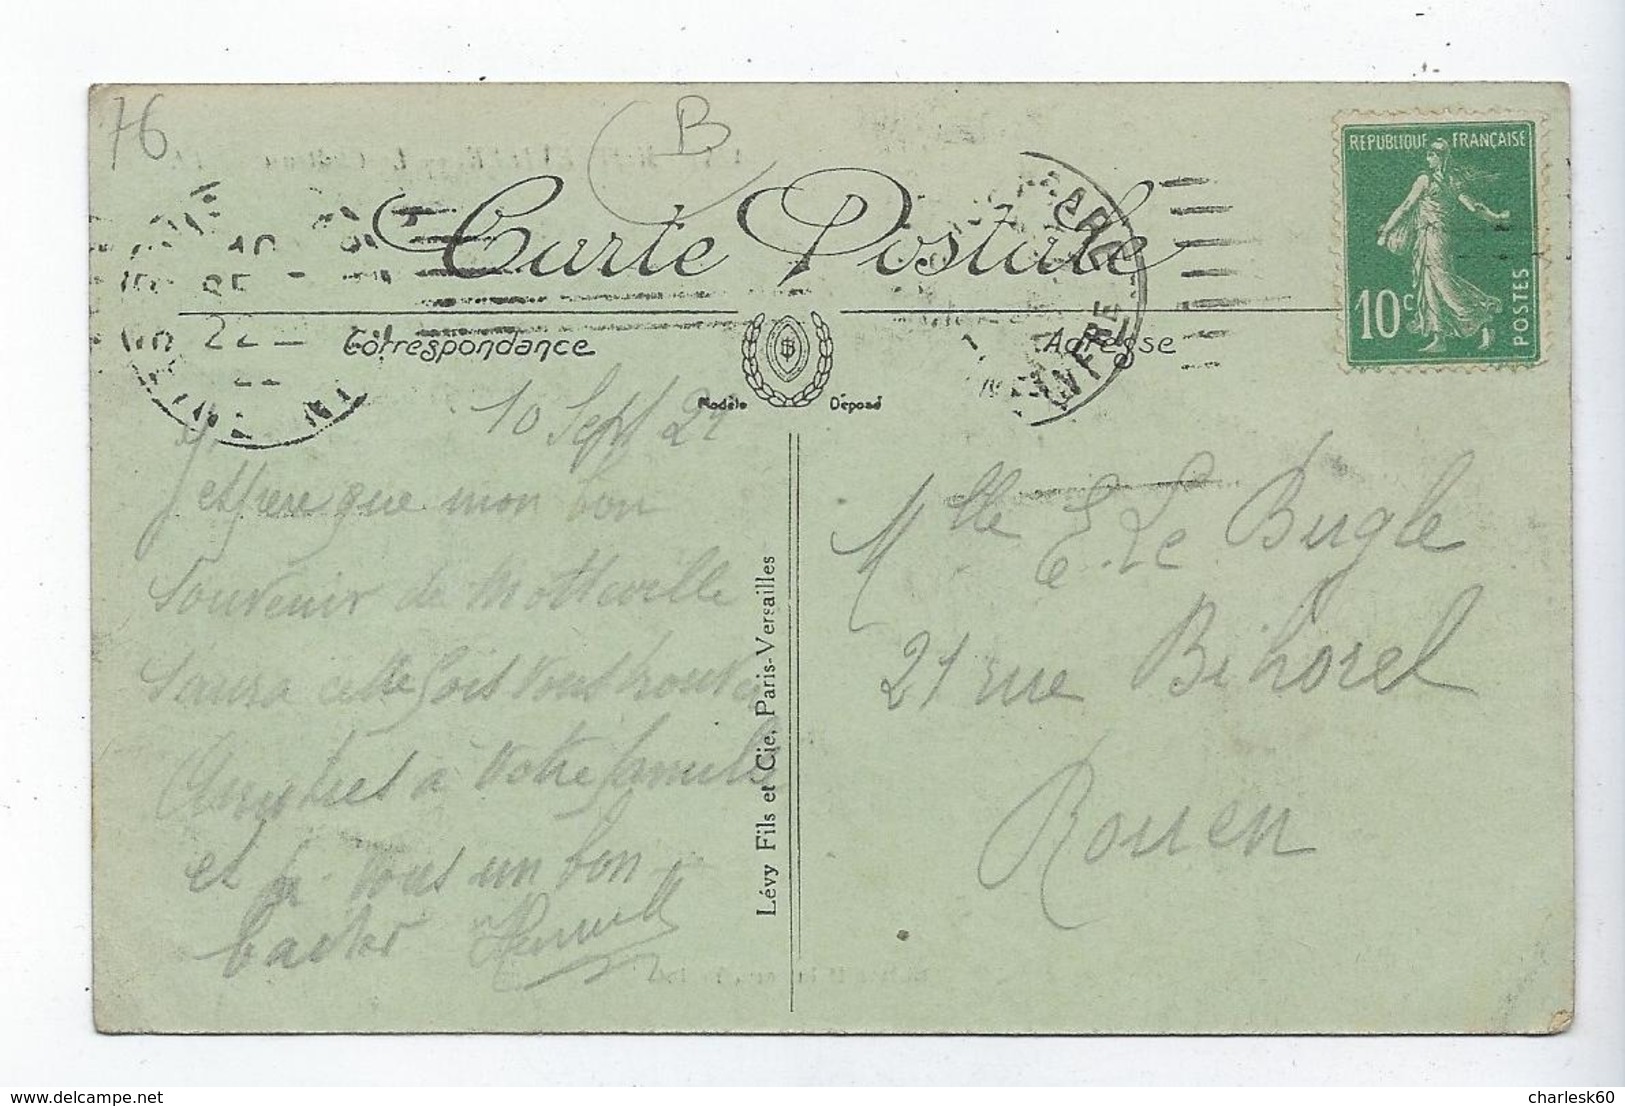 76
B
Carte Postale
RÉPUBLIQUE FRANÇAISE
10c
POSTES
Correspondance
Adresse
Modèle Déposé
10 Sept 22
J'espère que mon bon
Souvenir de Motteville
Saura cette fois vous trouver
à Votre famille
et à Vous un bon
Lévy Fils et Cie, Paris-Versailles
Mlle E. Le Bugle
21 rue Bihorel
Rouen
delcampe.net
charlesk60